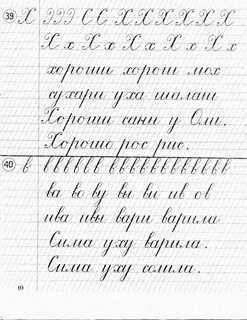 39 Х Э Э Э С С Х Х Х Х Х Х Х
Х х Х х Х х Х х Х х
хороши хорош мох
сухари уха шалаш
Хороши сани у Оли.
Хорошо рос рис.
40 в в в в в в в в в в в в в в в в
ва во ву вы ви ив ов
ива ивы вари варила
Сима уху варила.
Сима уху солила.
10